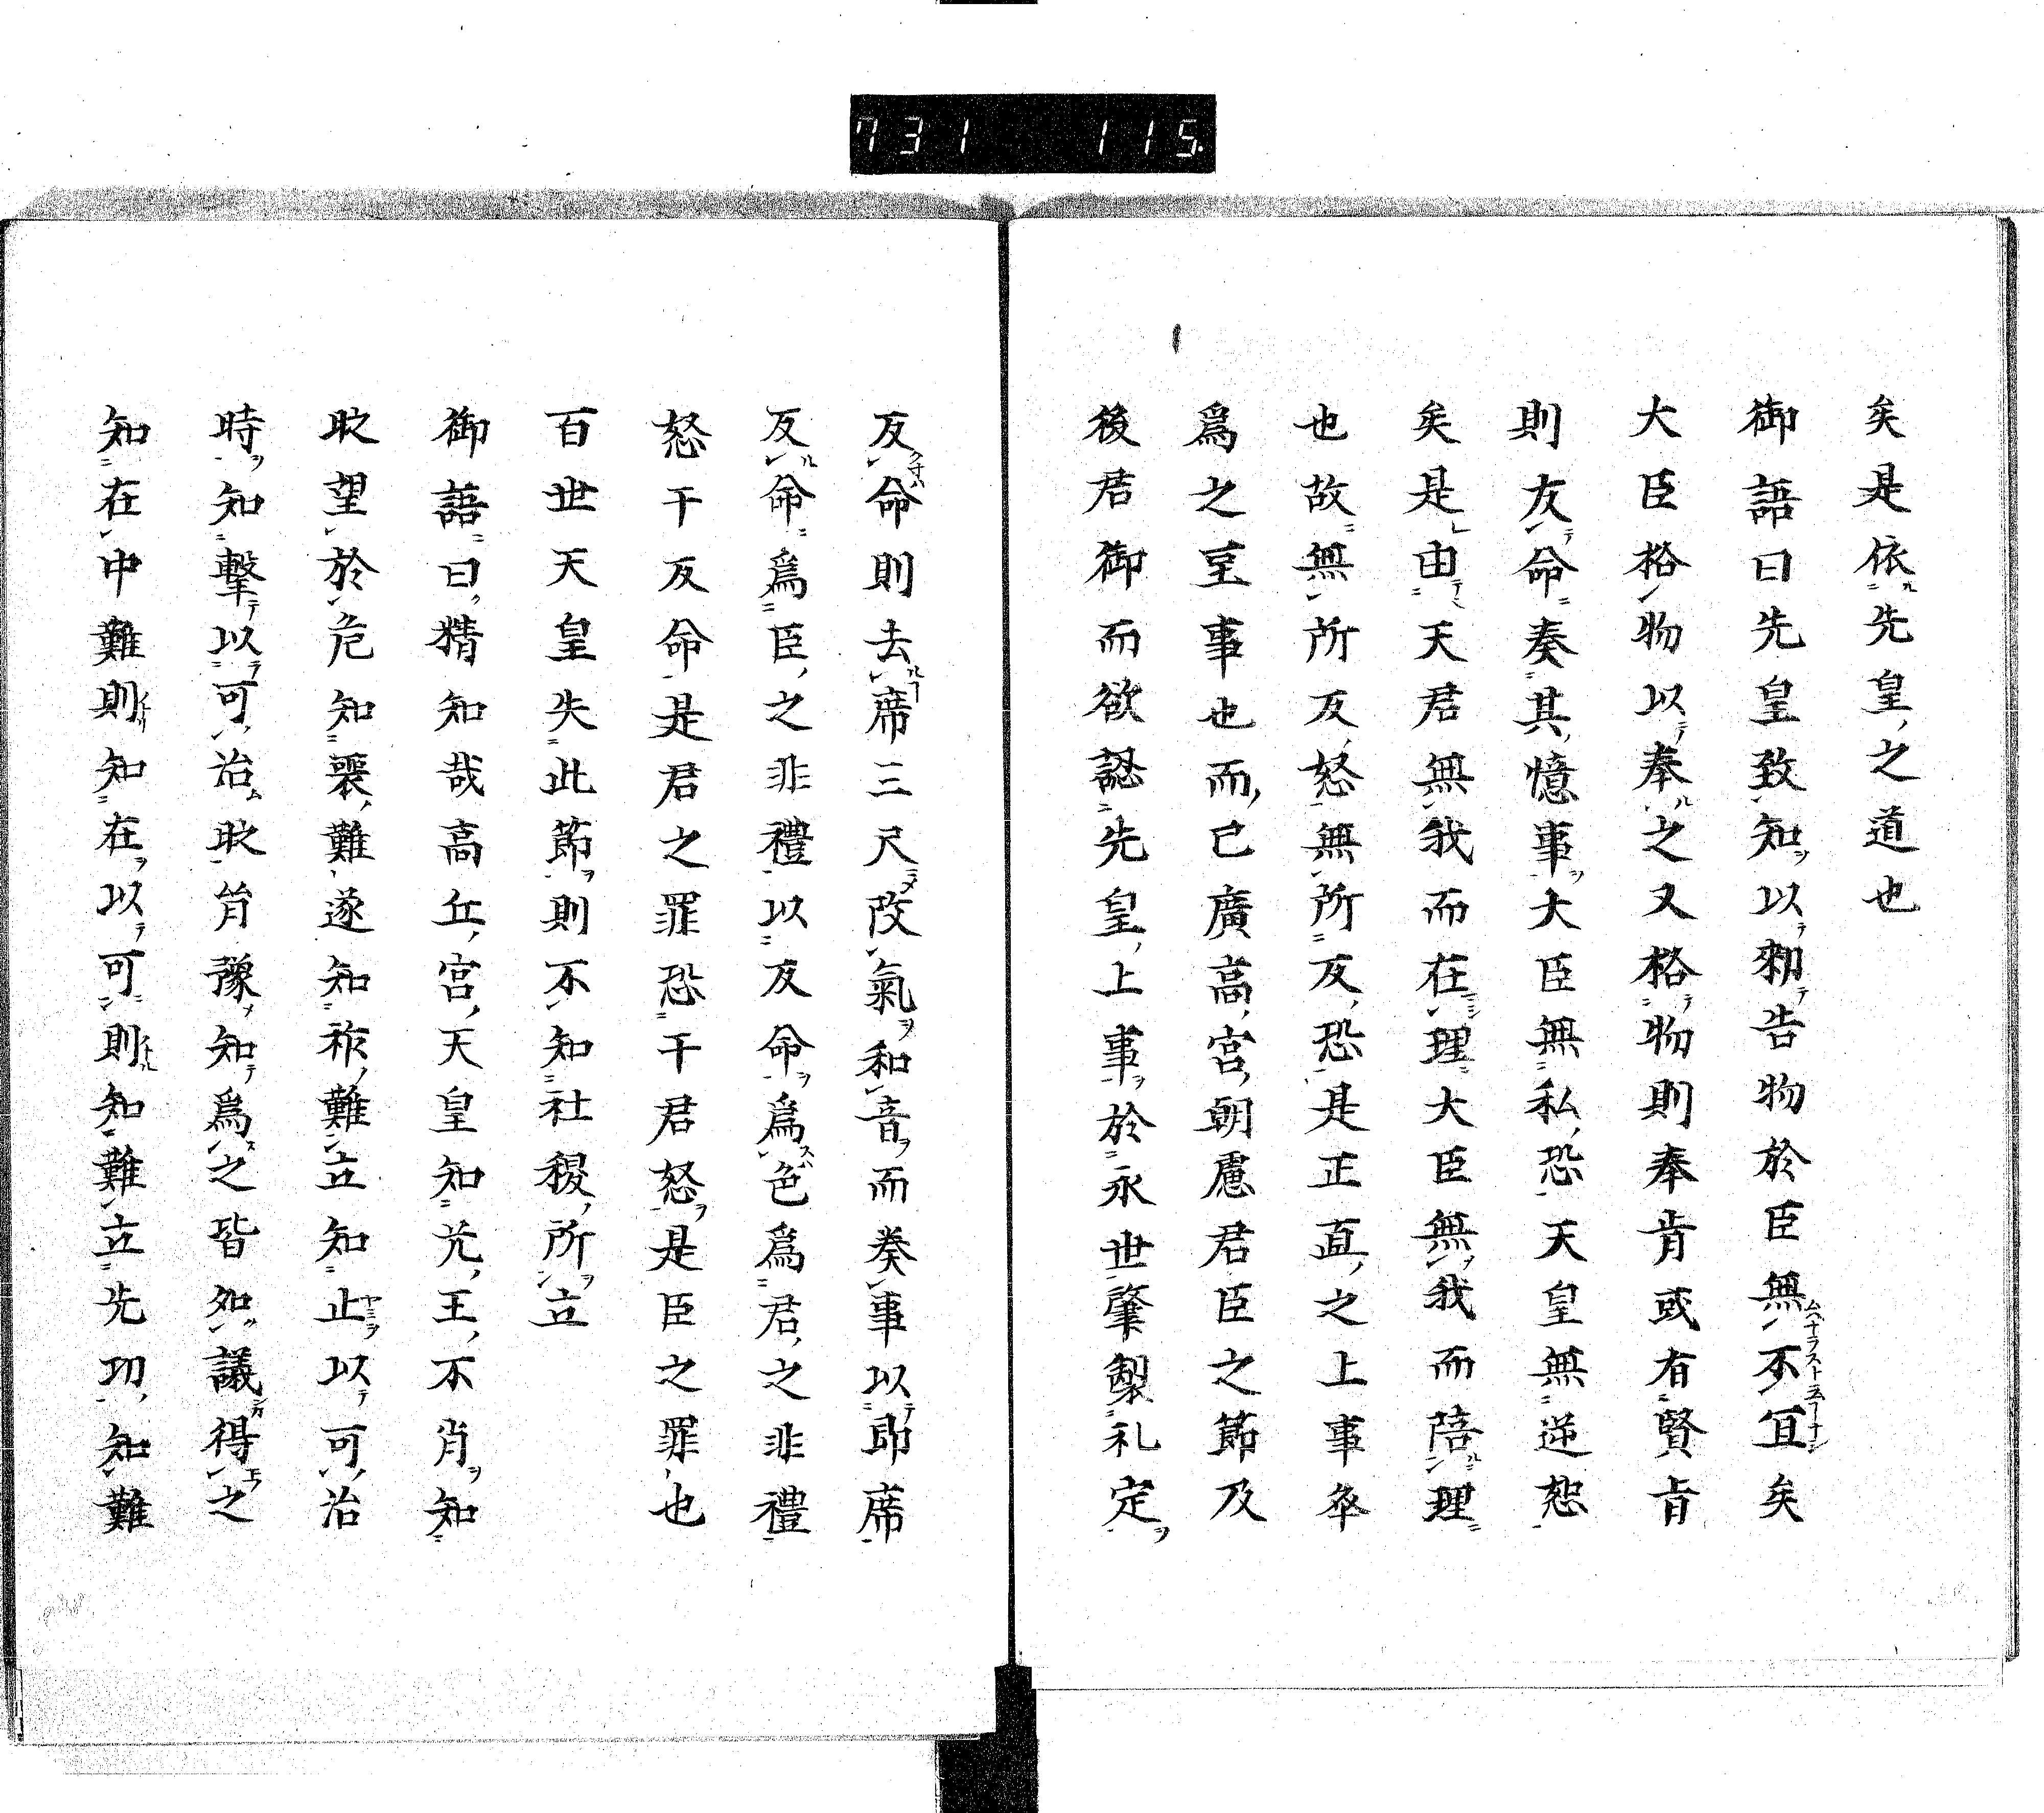 731 115
矣是依先皇之道也
御語曰先皇致知以勅告物於臣無不宜矣
大臣格物以奉之又格物則奉肯或有賢肯
則友命奏其憶事大臣無私恐天皇無逆恕
矣是由天君無我而在理大臣無我而陪理
也故無所反怒無所反恐是正直之上事卒
爲之至事也而已廣高宮朝慮君臣之節及
後君御而欲認先皇上事於永世肇製礼定
反命則去席三尺改氣和音而奏事以即席
反命爲臣之非禮以反命爲色爲君之非禮
怒于反命是君之罪恐于君怒是臣之罪也
百世天皇失此節則不知社稷所立
御語曰精知哉高丘宮天皇知先王不肖知
政望於危知襲難遂知祚難立知止以可治
時知撃以可治政肯豫知爲之皆如議得之
知在中難則知在以可則知難立先功知難